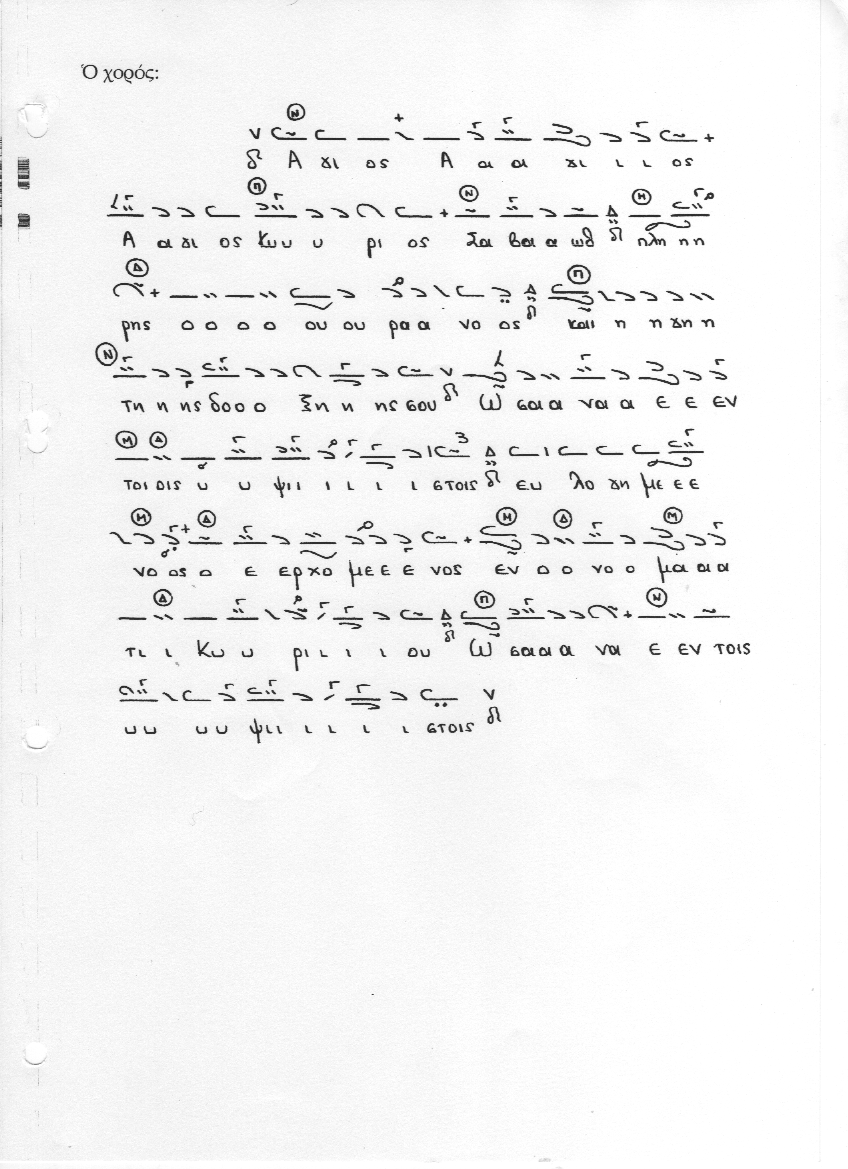 Ὁ χορός:
Α γι ος Α α α γι ι ι ος
Α α γι ος Κυυ υ ρι ος Σα βα α ωθ πλη η η
ρης ο ο ο ο ου ου ρα α νο ος και η η γη η
τη η ης δο ο ο ξη η ης σου Ω σα α να α ε ε εν
τοι οις υ υ ψι ι ι ι ι στοις ευ λο γη με ε ε
νο ος ο ε ερχο με ε ε νος εν ο ο νο ο μα α α
τι ι Κυ υ ρι ι ι ι ου Ω σα α α να ε εν τοις
υ υ υ υ ψι ι ι ι ι ι στοις